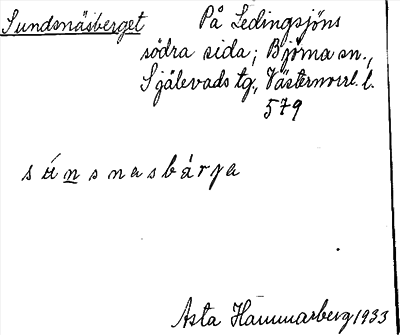 Sundsnäsberget På Ledingsjöns
södra sida; Björna sn.,
Själevads tg., Västernorrl. l.
579
s ú n s n a s b á r j a
Asta Hammarberg 1933